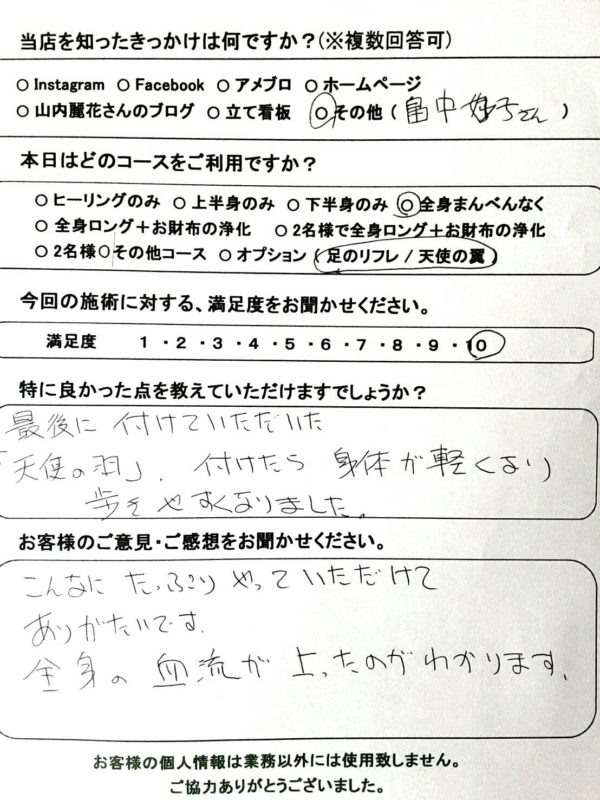 当店を知ったきっかけは何ですか？(※複数回答可)
○ Instagram ○ Facebook ○ アメブロ ○ ホームページ
○ 山内麗花さんのブログ ○ 立て看板 ○ その他 ( 畠中 さん )
本日はどのコースをご利用ですか？
○ ヒーリングのみ ○ 上半身のみ ○ 下半身のみ ○ 全身まんべんなく
○ 全身ロング＋お財布の浄化 ○ 2名様で全身ロング＋お財布の浄化
○ 2名様○その他コース ○ オプション ( 足のリフレ / 天使の翼 )
今回の施術に対する、満足度をお聞かせください。
満足度 1 ・ 2 ・ 3 ・ 4 ・ 5 ・ 6 ・ 7 ・ 8 ・ 9 ・ 10
特に良かった点を教えていただけますでしょうか？
最後に 付けていただいた
「天使の羽」. 付けたら 身体が軽くなり
歩きやすくなりました。
お客様のご意見・ご感想をお聞かせください。
こんなに たっぷり やっていただけて
ありがたいです.
全身の 血流が 上ったのがわかります.
お客様の個人情報は業務以外には使用致しません。
ご協力ありがとうございました。